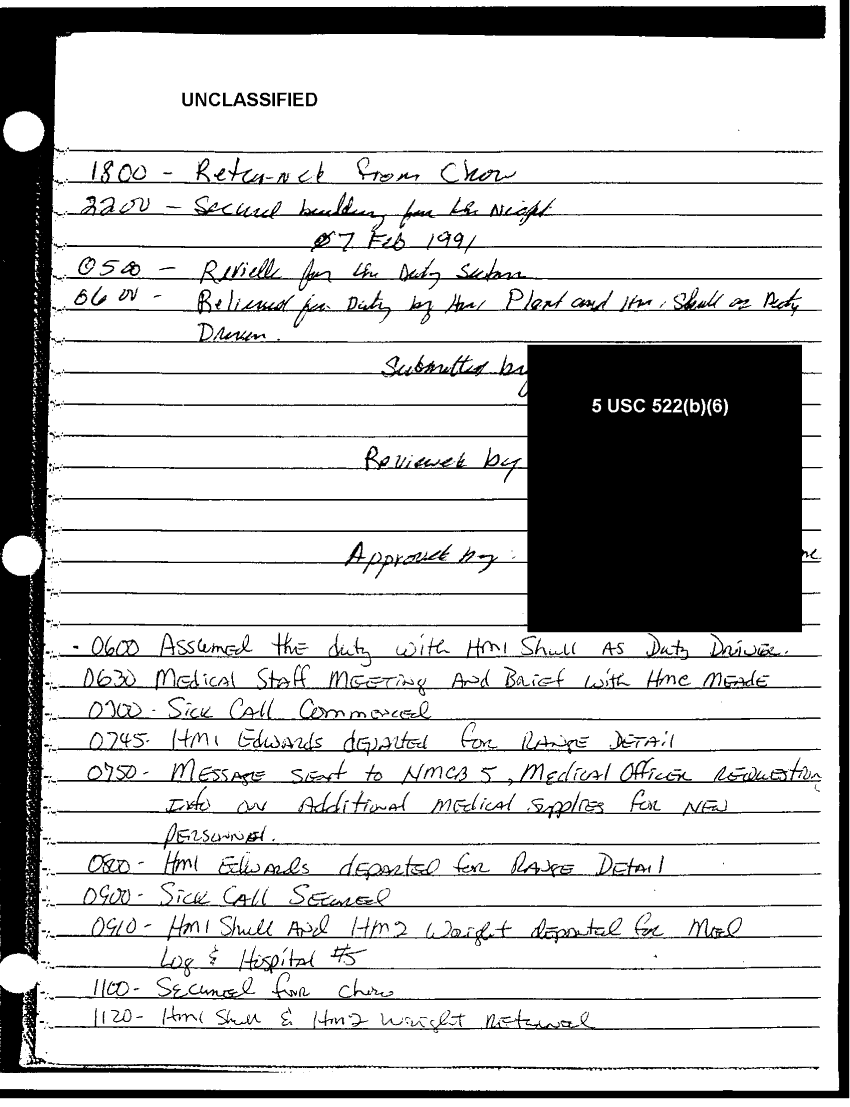 UNCLASSIFIED
1800 - Returned from Chow
2200 - Secured building for the Night
07 Feb 1991
0500 - Revielle for the Duty Section
0600 - Relieved for Duty by Hm1 Plant and Hm1 Shull as Duty
Driver.
Submitted by
5 USC 522(b)(6)
Reviewed by
Approved by :
0600 Assumed the duty with HM1 Shull AS Duty Driver.
0630 Medical Staff MEETING AND Brief with Hmc MEADE
0700 - Sick CALL Commenced
0745 - HM1 Edwards departed for RANGE DETAIL
0750 - MESSAGE SENT to NMCB 5, Medical Officer REQUESTION
Info on Additional Medical Supplies for NEW
PERSONNEL.
0800 - Hm1 Edwards departed for RANGE Detail
0900 - Sick CALL Secured
0910 - Hm1 Shull And HM2 Wright departed for Med
Log & Hospital #5
1100 - Secured for chow
1120 - HM1 Shull & HM2 Wright Returned